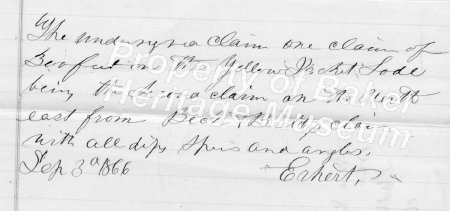 The undersigned claim one claim of
200 feet in The Yellow Jacket Lode
being the second claim on the North
east from Discovery claim
with all dips Spurs and angles,
Sep 3d 1866
Eckert,
Property of Baker
Heritage Museum